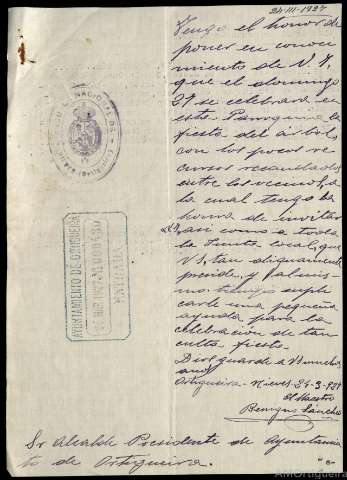 24-III-1927
Tengo el honor de
poner en conoci
miento de V. S.
que el domingo
27 se celebrará en
esta Parroquia la
fiesta del árbol
con los pocos re
cursos recaudados
entre los vecinos, a
la cual tengo la
honra de invitar
así como a toda
la Junta local, que
V.S. tan dignamente
preside, y
mo tengo supli
carle una pequeña
ayuda para la
celebración de tan
culta fiesta.
Dios guarde a V. muchos
años
Ortigueira - Nieves 24-3-927
El Maestro
Benigno Sánchez
Sr. Alcalde Presidente de Ayuntamie
to de Ortigueira.
NACIONAL DE
AYUNTAMIENTO DE ORTIGUEIRA
ENTRADA
AMOrtigueira